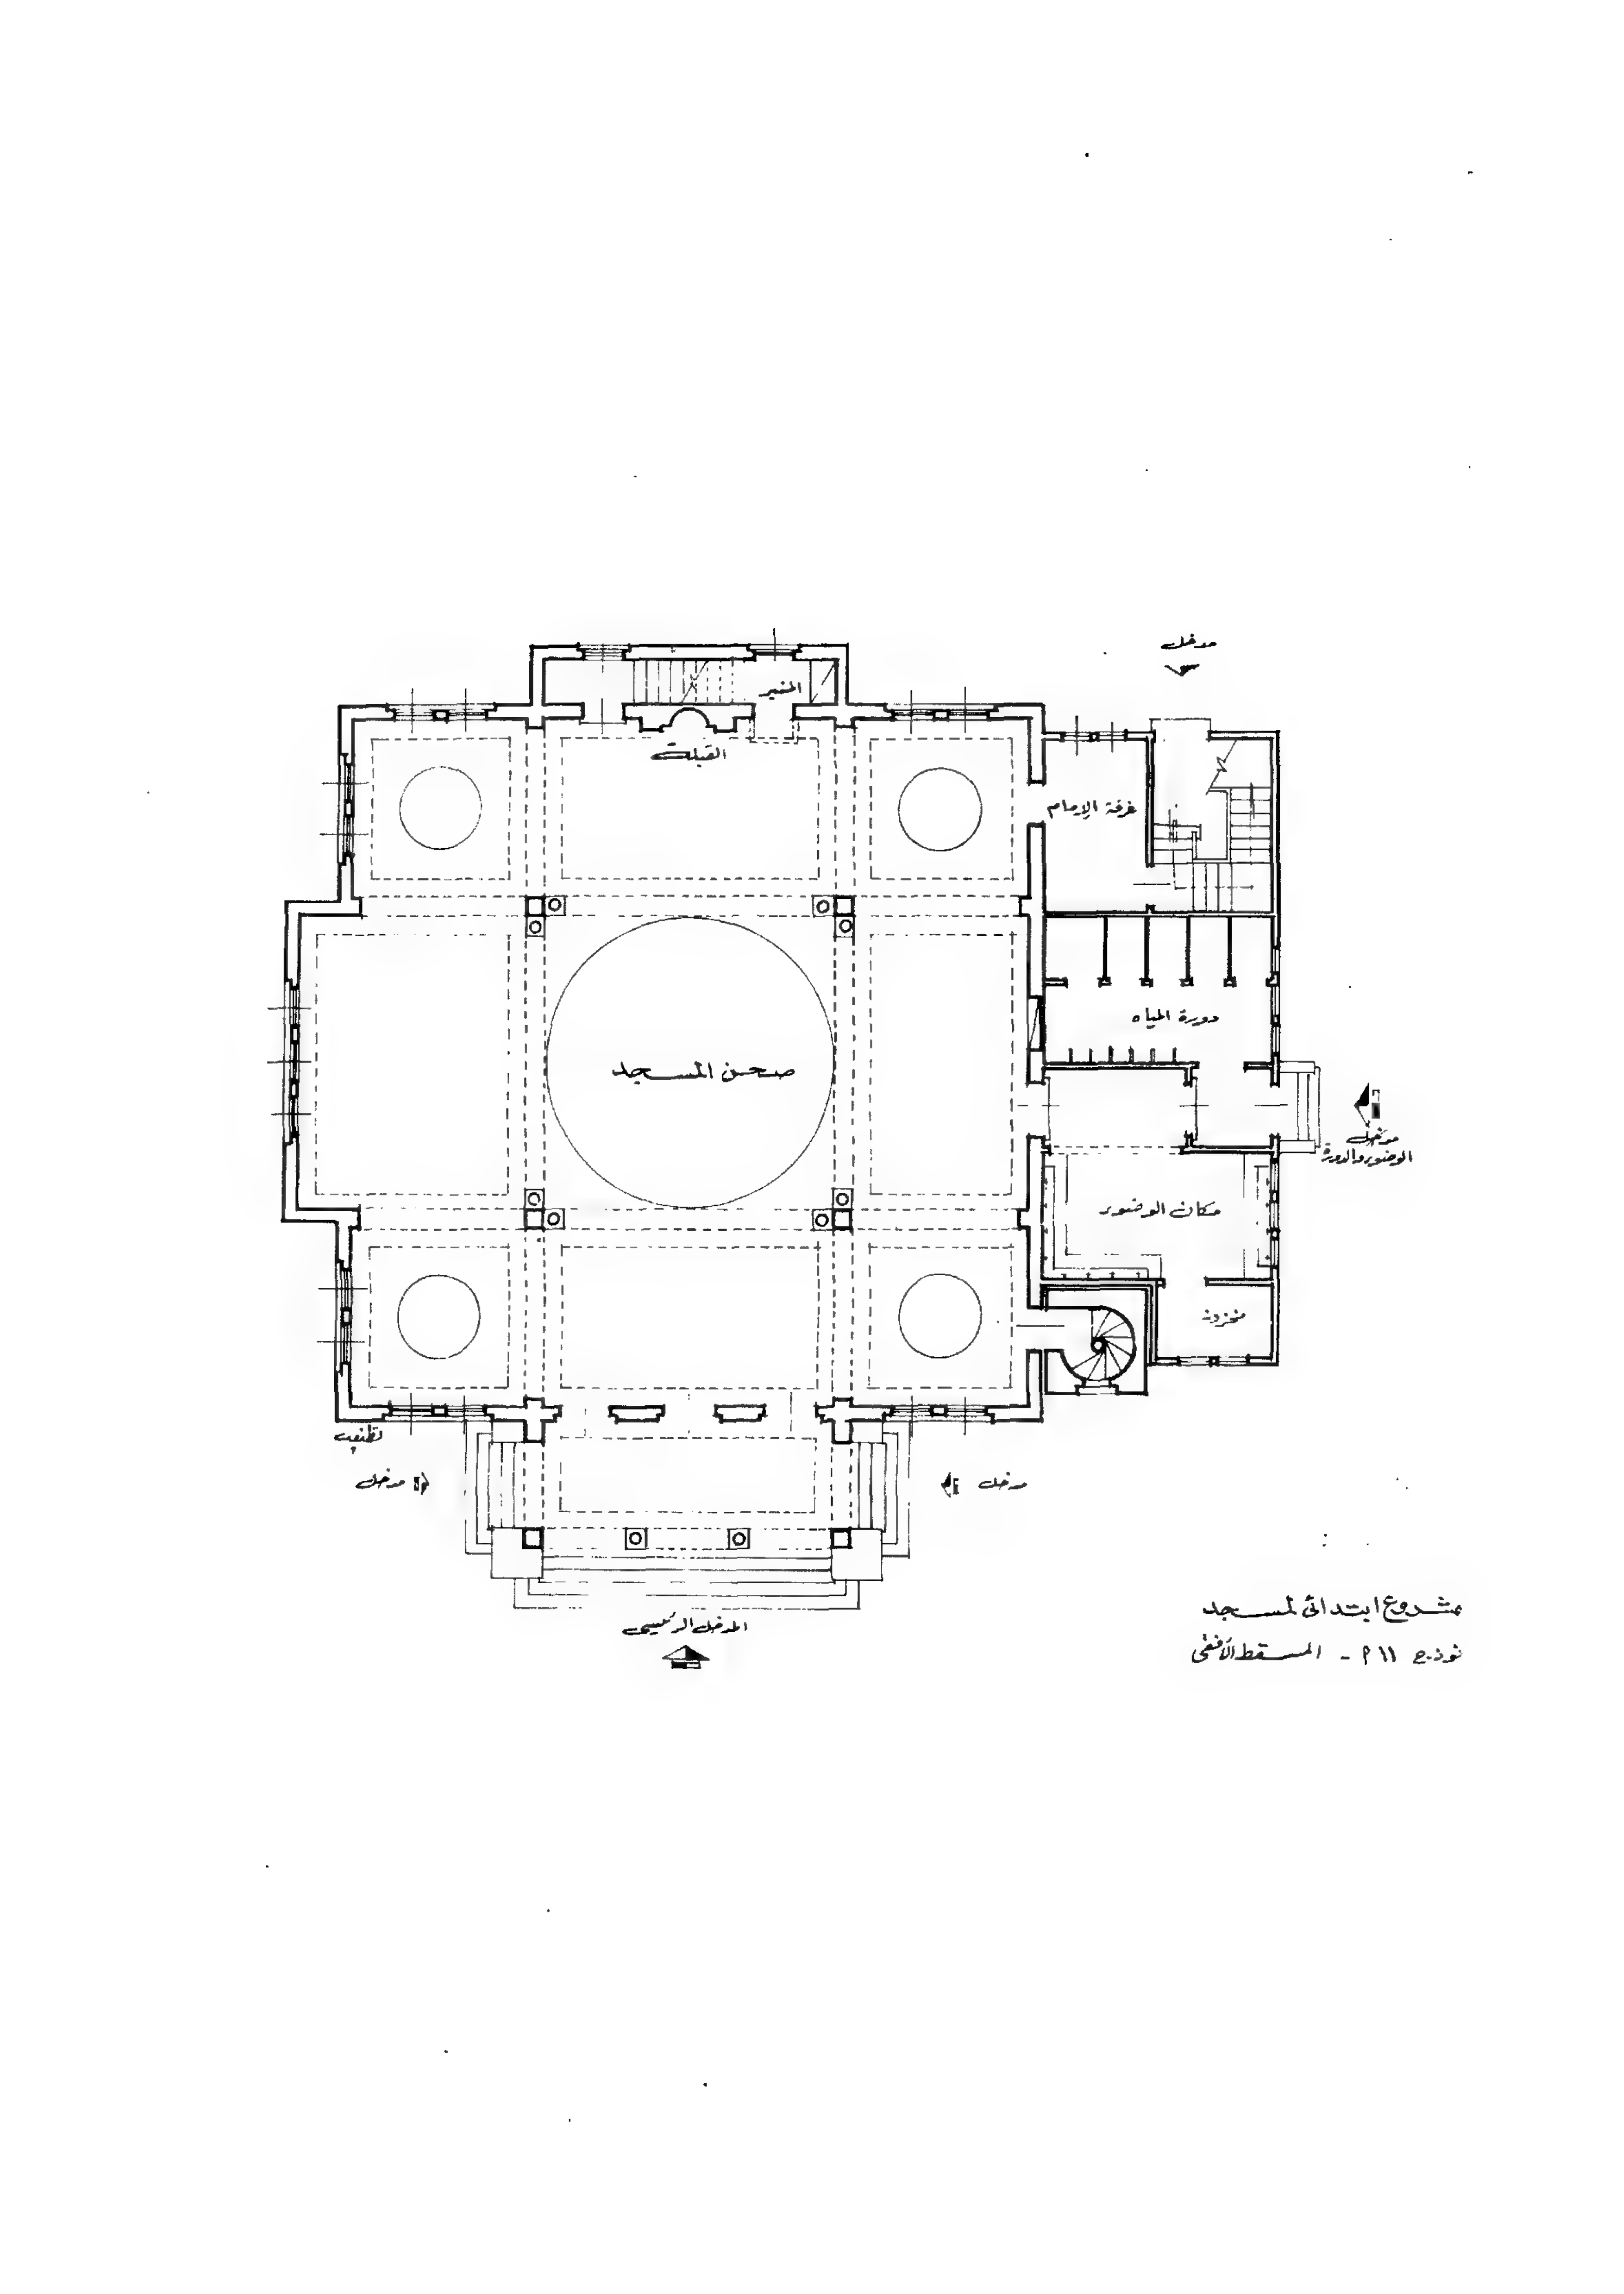 مدخل
المنبر
القبلة
غرفة الإمام
دورة المياه
صحن المسجد
مدخل
الوضوء والدورة
مكان الوضوء
مخزن
مدخل
مدخل
المدخل الرئيسى
مشروع ابتدائى لمسجد
نموذج ١١ م - المسقط الأفقى